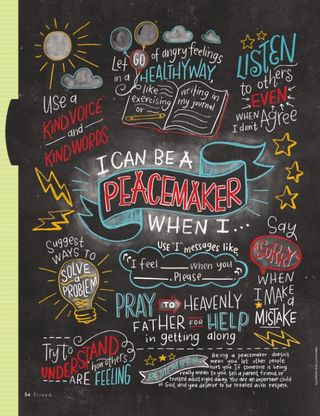 Let GO of angry feelings
in a HEALTHY WAY
like exercising or
writing in my journal
LISTEN
to others
EVEN
WHEN
I don't Agree
Use a
KIND VOICE
and
KIND WORDS
I CAN BE A
PEACEMAKER
WHEN I...
Suggest
WAYS TO
SOLVE
a
PROBLEM
Use "I" messages like,
"I feel ___ when you
___. Please ___."
Say
SORRY
WHEN
I MAKE
a
MISTAKE
PRAY TO HEAVENLY
FATHER FOR HELP
in getting along
Try to
UNDERSTAND
how others
ARE FEELING
REMEMBER
Being a peacemaker doesn't
mean you let other people
hurt you. If someone is being
really mean to you, tell a parent, friend, or
trusted adult right away. You are an important child
of God, and you deserve to be treated with respect.
34 Friend